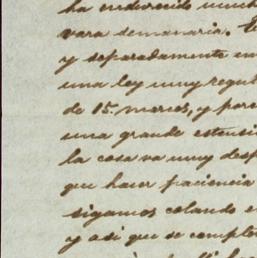 ha endurecido much
vara demanaria. E
y separadamente en
una ley muy regul
de 15 marcos, y por
una grande estensi
la cosa va muy desp
que hacer paciencia
sigamos colando e
y asi que se complet